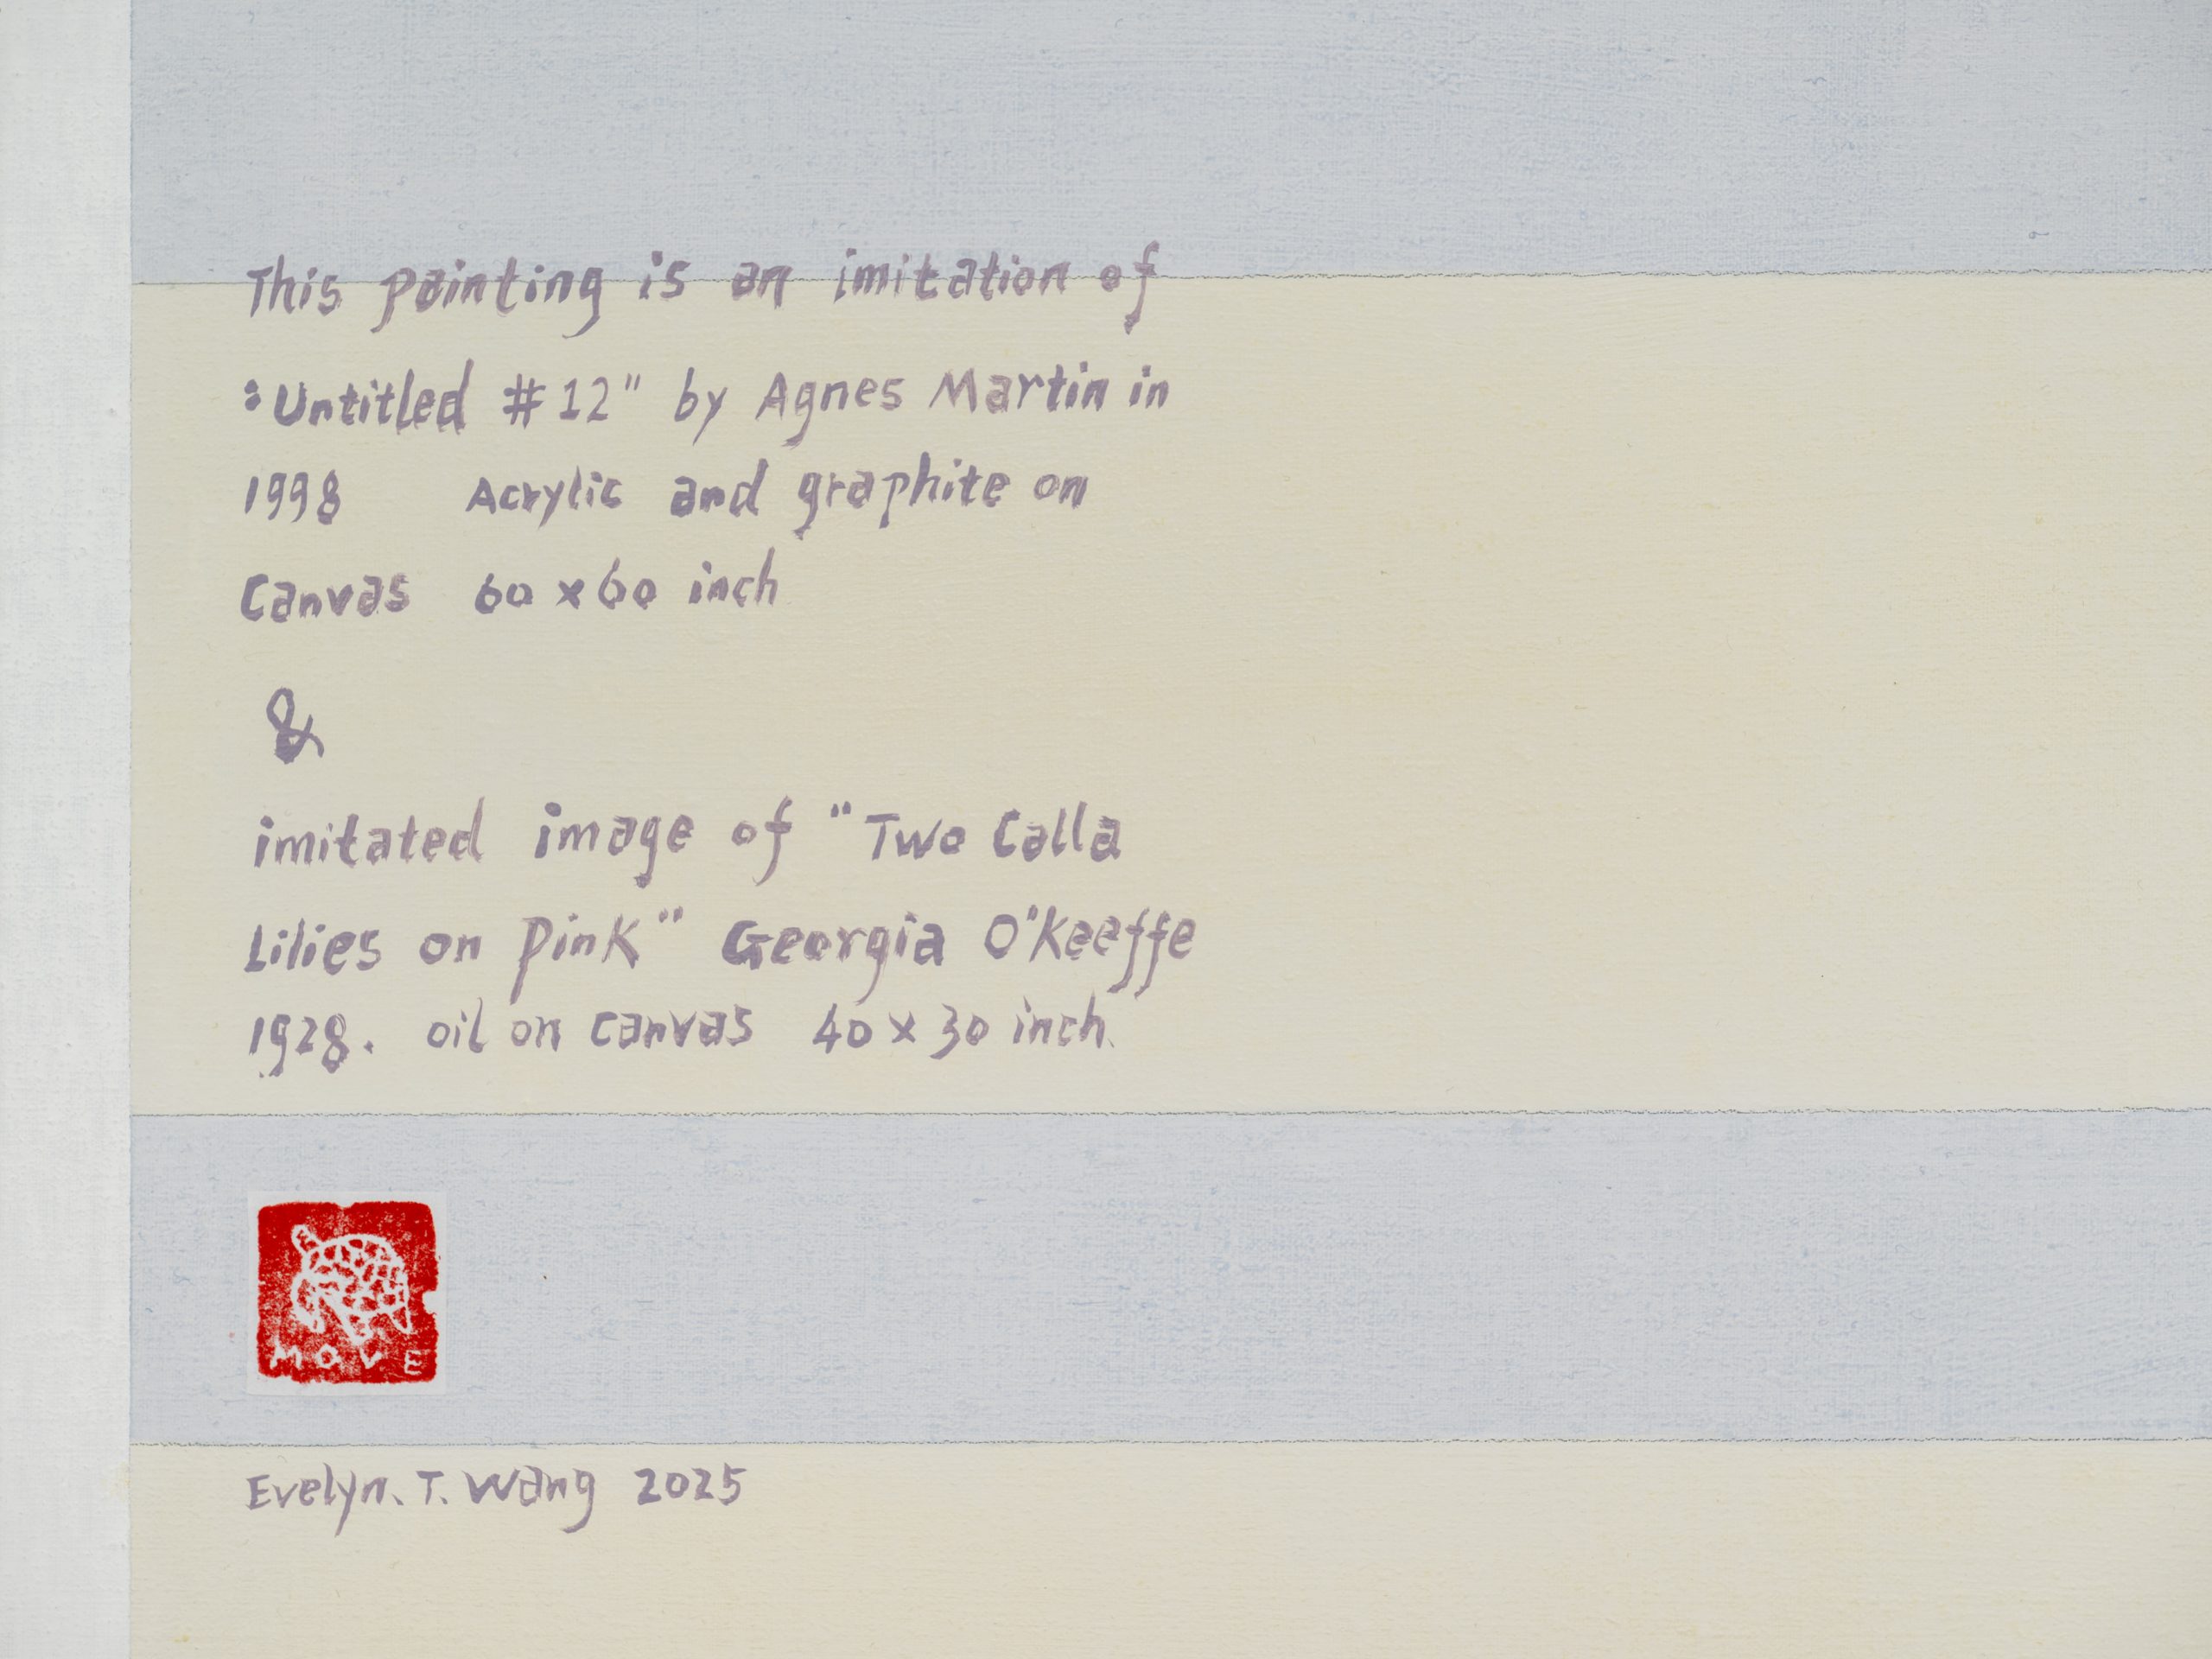 This painting is an imitation of
"Untitled #12" by Agnes Martin in
1998 Acrylic and graphite on
Canvas 60 x 60 inch
&
imitated image of "Two Calla
Lilies on Pink" Georgia O'Keeffe
1928. oil on canvas 40 x 30 inch.
MOVE
Evelyn. T. Wang 2025